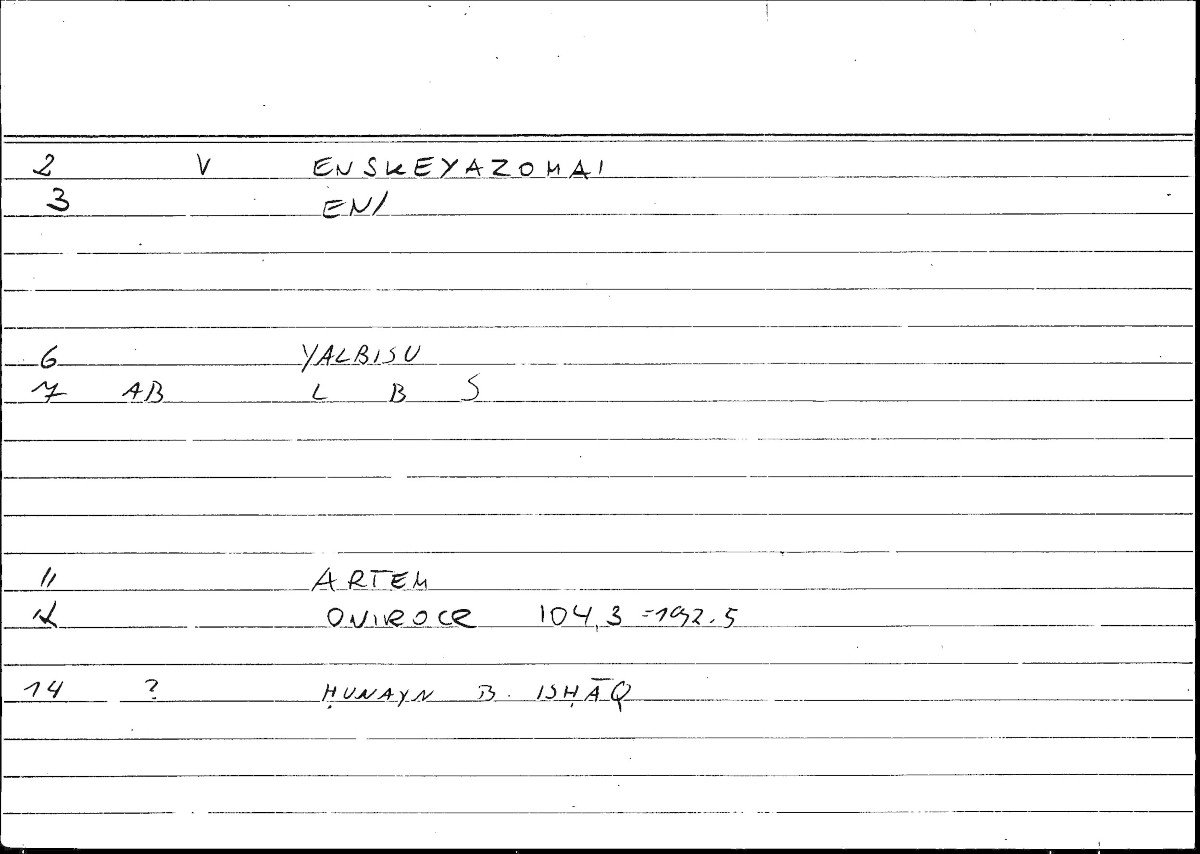 2 V ENSKEYAZOMAI
3 EN/
6 YALBISU
7 AB L B S
11 ARTEM
12 ONIROCR 104,3 =192.5
14 ? ḤUNAYN B. ISḤĀQ